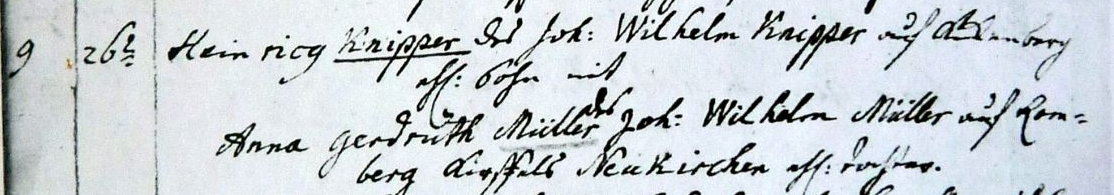 9 26t Heinrich Knipper des Joh: Wilhelm Knipper auf
ehl: Sohn mit
Anna Gerdruth Müller des Joh: Wilhelm Müller auf Rom=
berg Kirspels Neukirchen ehl: Tochter.